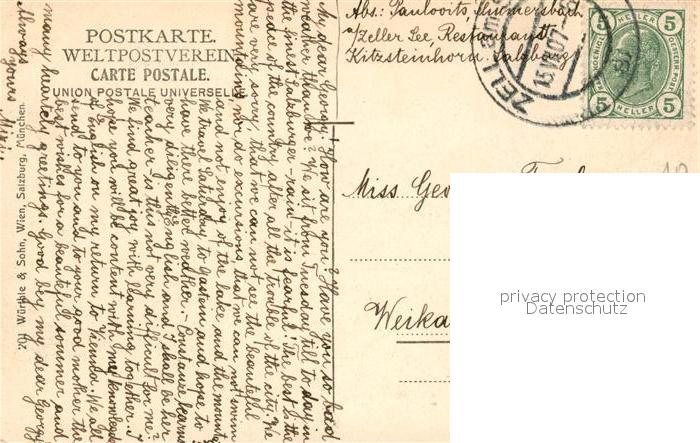 POSTKARTE.
WELTPOSTVEREIN
CARTE POSTALE.
UNION POSTALE UNIVERSELLE
Würthle & Sohn, Wien, Salzburg, München.
My dear Georgy! How are you? Have you so bad
weather than we? We sit from Tuesday till to day in
the finest Salzburger-rain - it is fearful! The best is the
of the country after all the trouble of the city. We
are very sorry, that we can not see the beautiful
mountains, nor do excursions, that we can not swim
and not enjoy of the lake and the mountains.
We travel Saturday to Gastein and hope to
have there better weather. - Constanze learns
very diligently English and I shall be her
teacher - is this not very difficult for me!
We find great joy with learning together. I
hope you will be content with my knowledge
of English on my return to Vienna. We all
send to you and to your good mother the
best wishes for a beautiful sommer and
many heartely greetings. Good bey my dear Georgy
Always
yours
Abs: Saulovits,
a/Zeller See, Restaurant
Kitzsteinhorn. Salzburg
ZELL am
15
07
5 HELLER 5
5 HELLER 5
Miss
Weika
privacy protection
Datenschutz